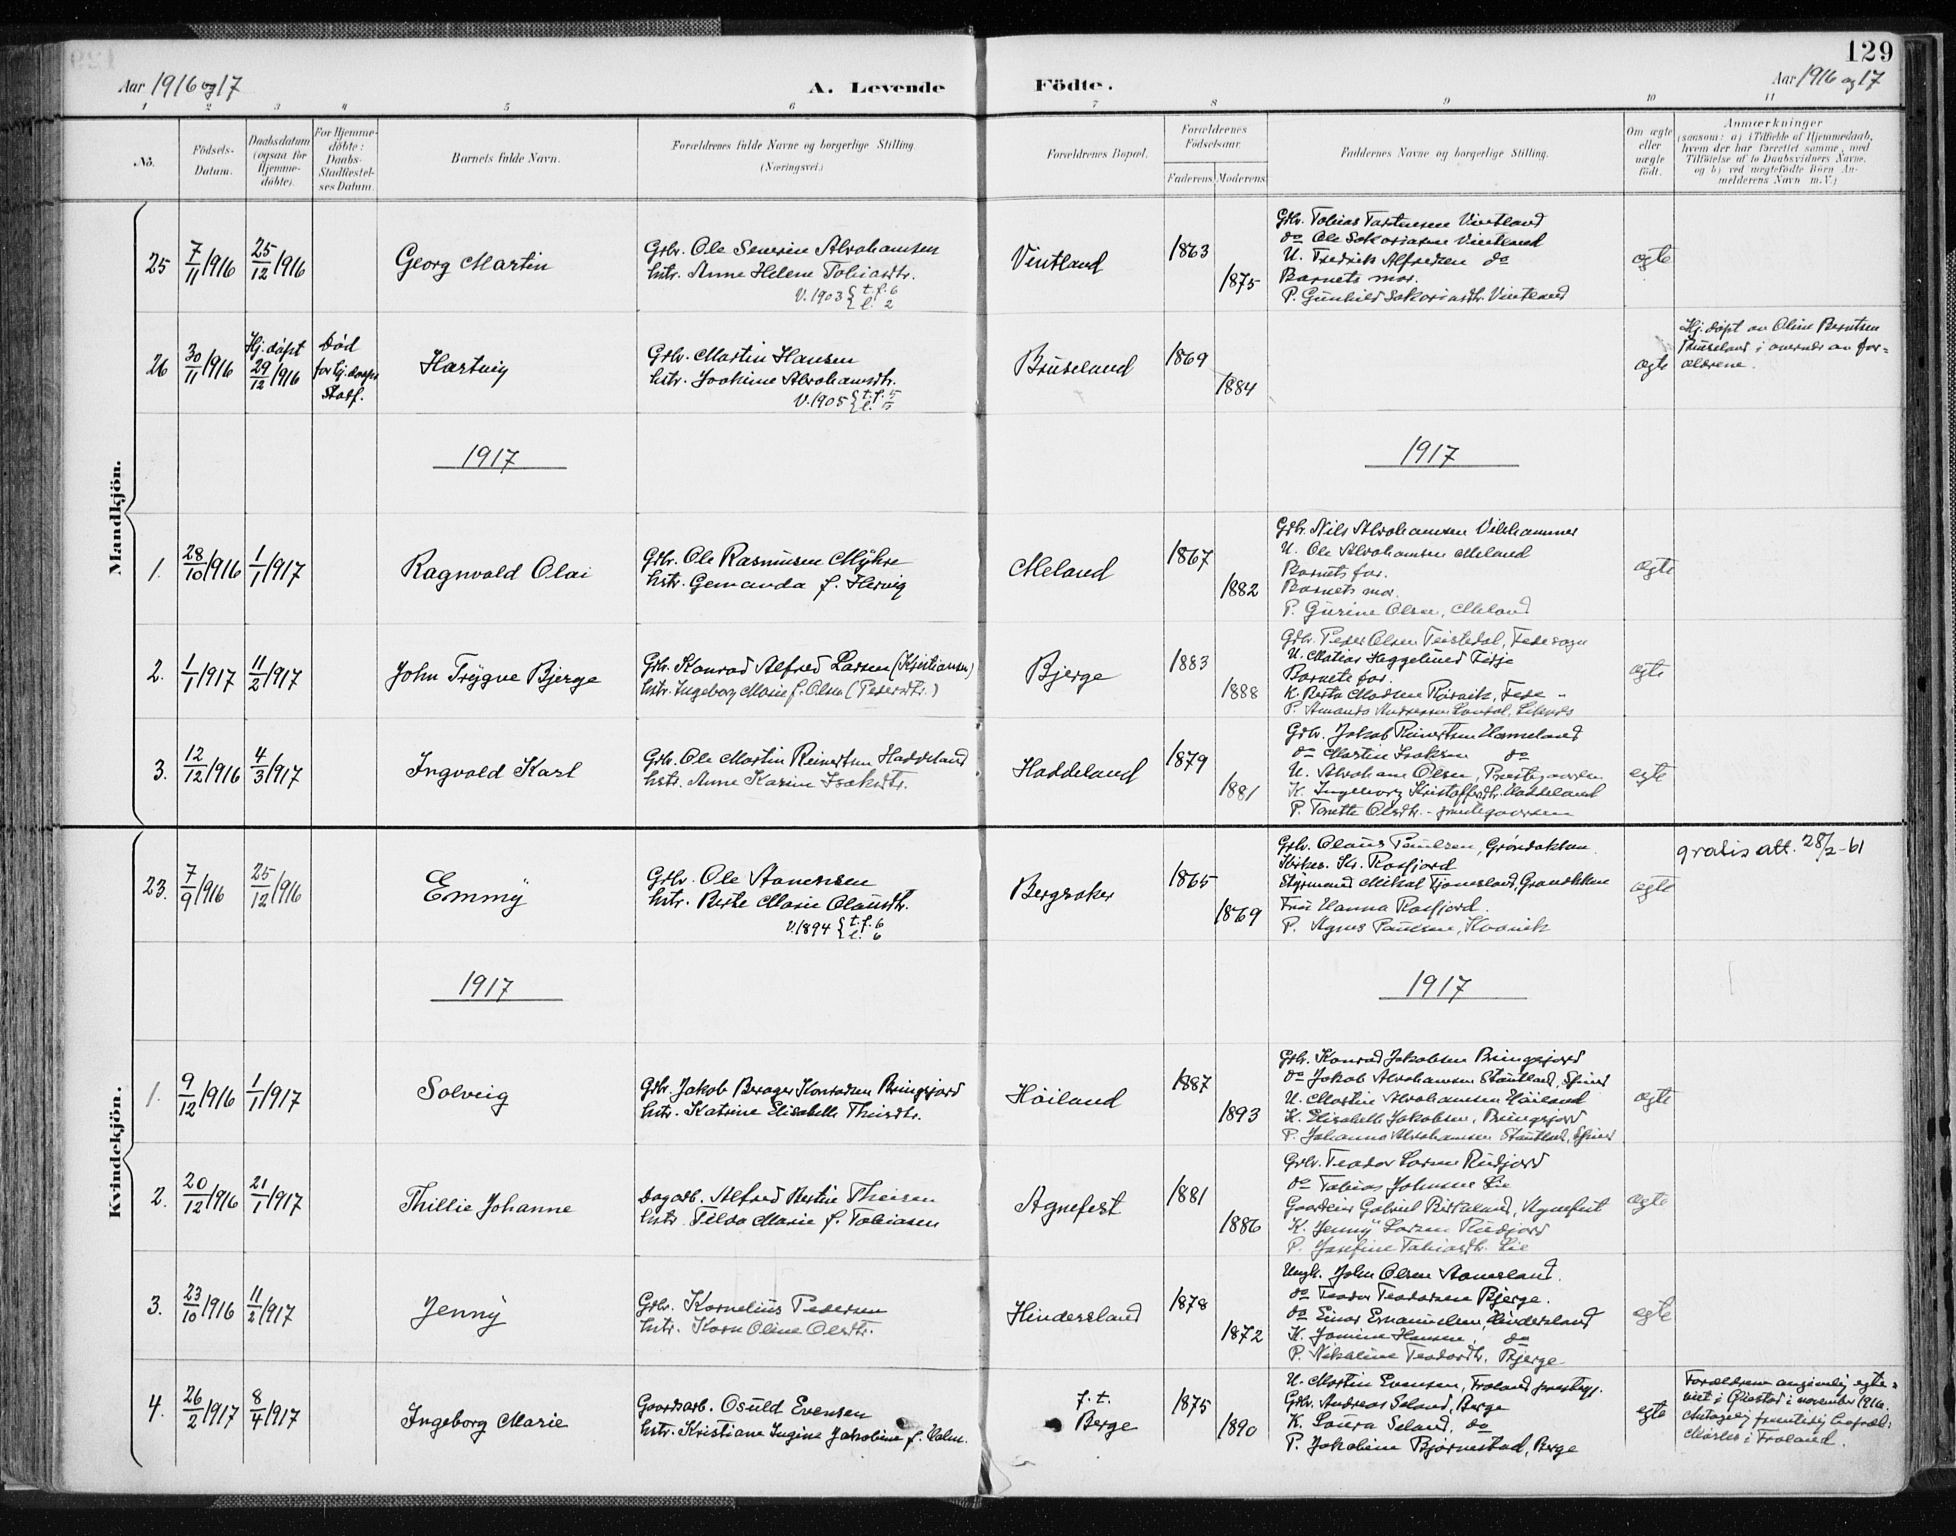 129
Aar 1916 og 17
A. Levende Födte.
Aar 1916 og 17
1 2 3 4 5 6 7 8 9 10 11
No.
Födsels-Datum.
Daabsdatum (ogsaa for Hjemme-döbte).
For Hjemme-döbte: Daabs-Stadfæstel-ses Datum.
Barnets fulde Navn.
Forældrenes fulde Navne og borgerlige Stilling.
(Næringsvei.)
Forældrenes Bopæl.
Forældrenes Födselsaar.
Faderens. Moderens.
Faddernes Navne og borgerlige Stilling.
Om ægte eller uægte födt.
Anmærkninger
(saasom: a) i Tilfælde af Hjemmedaab, hvem der har forrettet samme, med Tilföielse af to Daabsvidners Navne, og b) ved uægtefödte Börn An-melderens Navn m. V.)
Mandkjön.
25 7/11 1916 25/12 1916 Georg Martin
Grbr. Ole Severin Abrahamsen
hstr. Anne Helene Tobiasdtr.
V. 1903 { t.f. 6
l. 2
Vintland 1863 1875
Grbr. Tobias Vintland
do Ole Sakariasen Vintland
U. Fredrik Alfredsen do
Barnets mor.
P. Gunhild Sakariasdtr. Vintland
egte
26 30/11 1916 Hj. døpt 29/12 1916
Død før hj. daapens Stadf.
Hartvig
Grbr. Martin Hansen
hstr. Joakime Abrahamsdtr.
V. 1905 { t.f. 5
l. 5
Bruseland 1869 1884
egte
Hj. døpt av Oline Berntsen
Bruseland i nærvær av for-
ældrene.
1917 1917
1. 28/10 1916 1/1 1917 Ragnvald Olai
Grbr. Ole Rasmusen Myhre
hstr. Gemanda f. Hervig
Meland 1867 1882
Grbr. Nils Abrahamsen
U. Ole Abrahamsen Meland
Barnets far.
Barnets mor.
P. Gurine Olsen, Meland
egte
2. 1/1 1917 11/2 1917 John Trygve Bjerge
Grbr. Konrad Alfred Larsen (Kristiansen)
hstr. Ingeborg Marie f. Olsen (Pedersdtr.)
Bjerge 1883 1888
Grbr. Peder Olsen Feistedal, Fedesogn
U. Matias Heggelund
Barnets far.
K. Berta Madsen Rørvik, Fede
P. Amanda Andersen
egte
3. 12/12 1916 4/3 1917 Ingvald Karl
Grbr. Ole Martin Reinertsen Haddeland
hstr. Anne Karine Isaksdtr.
Haddeland 1879 1881
Grbr. Jakob Reinertsen Haddeland
do Martin Isaksen do
U. Abraham Olsen, Prestegaarden
K. Ingeborg Kristoffersdtr. Haddeland
P. Tonette Olsdtr. - prestegaarden
egte
Kvindekjön.
23. 7/9 1916 25/12 1916 Emmy
Grbr. Ole Aanensen
hstr. Berte Marie Olausdtr.
V. 1894 { t.f. 6
l. 6
Bergsaker 1865 1869
Grbr. Olaus Paulsen, Grøndokken
Kr. Rosfjord
Styrmand Mikal Tjomsland, Grønokken
Fru Hanna Rosfjord.
P. Agnes Paulsen, Kvavik
egte
gratis att. 28/2-61
1917 1917
1. 9/12 1916 1/1 1917 Solveig
Grbr. Jakob Berager Konradsen Bringsjord
hstr. Katrine Elisabeth Theisdtr.
Høiland 1887 1893
Grbr. Konrad Jakobsen Bringsjord
do Jakob Abrahamsen Stautland, Spind
U. Martin Abrahamsen Høiland
K. Elisabeth Jakobsen, Bringsjord
P. Johanna Abrahamsen Stautland, Spind
egte
2. 20/12 1916 21/1 1917 Thillie Johanne
Dagarb. Alfred Bertin Theisen
hstr. Tilda Marie f. Tobiasen
Agnefest 1881 1886
Grbr. Teodor Larsen Rudjord
do Tobias Johnsen Lie
Gaardeier Gabriel Birkeland, Agnefest
K. Jenny Larsen Rudjord
P. Josefine Tobiasdtr. Lie
egte
3. 23/10 1916 11/2 1917 Jenny
Grbr. Kornelius Pedersen
hstr. Karn Oline Olsdtr.
Hindersland 1878 1872
Ungk. John Olsen Aamesland.
do Teodor Teodorsen Bjerge.
do Einar Emanuelsen, Hindersland
K. Jomine Hansen, do
P. Nikoline Teodordtr. Bjerge
egte
4. 26/2 1917 8/4 1917 Ingeborg Marie
Gaardsarb. Osuld Evensen
hstr. Kristiane Eugine Jakobine f. Holm.
f.t. Berge 1875 1890
U. Martin Evensen, Froland prestegj.
Grbr. Andreas Seland, Berge
K. Laura Seland, do
P. Jakobine Bjørnestad, Berge
egte
Forældrene angivelig egte-
viet i Øiestad i november 1916.
Antagelig fremtidig bopæl:
Mørles i Froland.